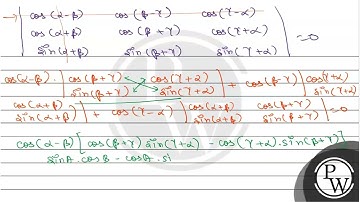 → | cos(α-β) cos(β-γ) cos(γ-α) |
| cos(α+β) cos(β+γ) cos(γ+α) | =0
| sin(α+β) sin(β+γ) sin(γ+α) |
cos(α-β) | cos(β+γ) cos(γ+2) | + cos(β-γ) | cos(γ+α)
sin(β+γ) sin(γ+α) | sin(γ+α)
cos(α+β) | + cos(γ-α) | cos(α+β) cos(β+γ) | =0
sin(α+β) | sin(α+β) sin(β+γ) |
cos(α-β) [ cos(β+γ) sin(γ+α) - cos(γ+α).sin(β+γ) ]
sinA.cosB - cosA.si
P
W
PW